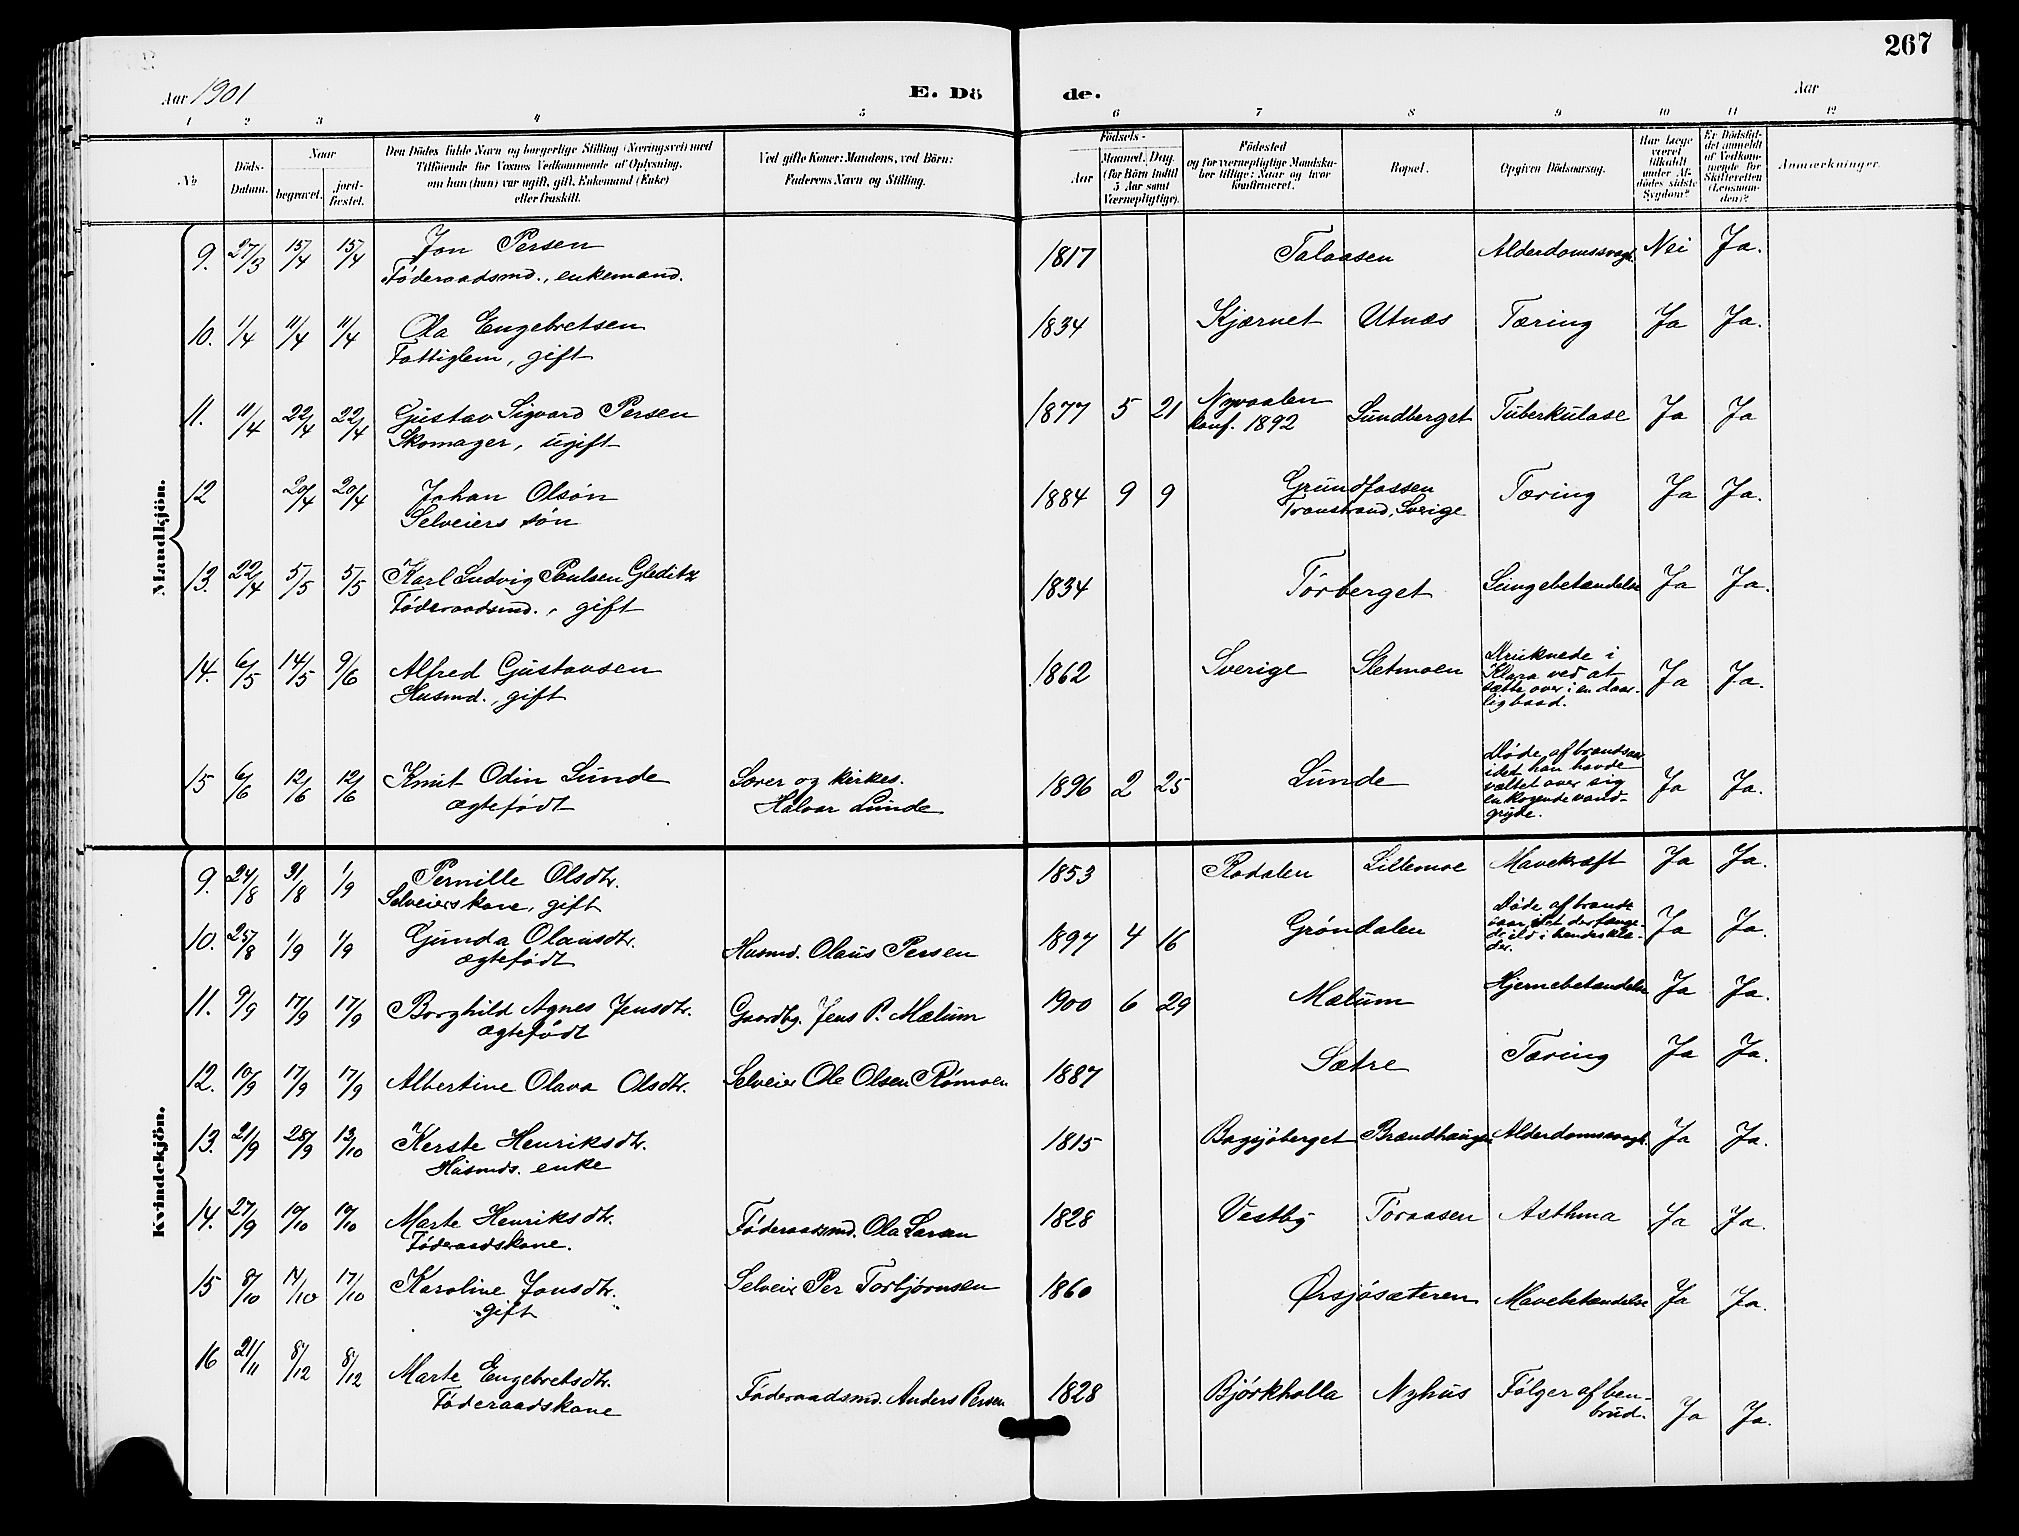 267
Aar 1901
E. Dö
de.
Aar
1 2 3 4 5 6 7 8 9 10 11 12
No
Döds-Datum.
Naar
begravet.
jord-fæstet.
Den Dödes fulde Navn og borgerlige Stilling (Næringsvei) med
Tilföiende for Voxnes Vedkommende af Oplysning,
om han (hun) var ugift, gift, Enkemand (Enke)
eller fraskilt.
Ved gifte Koner: Mandens, ved Börn:
Faderens Navn og Stilling.
Födsels-
Aar
Maaned. Dag.
(for Börn indtil
5 Aar samt
Værnepligtige).
Födested
og for værnepligtige Mandskaber tillige: Naar og hvor
Konfirmeret.
Bopæl.
Opgiven Dödsaarsag.
Har Læge
været
tilkaldt
under Afdödes sidste
Sygdom?
Er Dödsfaldet anmeldt
af Vedkommende for
Skifteretten
(Lensmanden)?
Anmerkninger.
Mandkjön.
9. 27/3 15/4 15/4 Jon Persen 1817 Talaasen Alderdomssvagh. Nei Ja.
Föderaadsmd., enkemand.
10. 1/4 11/4 11/4 Ola Engebretsen 1834 Kjærnet Utnæs Tæring Ja Ja.
Fattiglem, gift
11. 11/4 22/4 22/4 Gustav Sigvard Persen 1877 5 21 Nyvaalen Sundberget Tuberkulose Ja Ja
Skomager, ugift konf. 1892
12 20/4 20/4 Johan Olsön 1884 9 9 Grundfossen Tæring Ja Ja.
Selveiers sön Transtrand, Sverige
13. 22/4 5/5 5/5 Karl Ludvig Paulsen Gleditz 1834 Törberget Lungebetændelse Ja Ja.
Föderaadsmd., gift
14. 6/5 14/5 9/6 Alfred Gustavsen 1862 Sverige Sletmoen Druknede i Ja Ja.
Husmd., gift Klara ved at
sætte over i en daar-
lig baad.
15 6/6 12/6 12/6 Knut Odin Lunde Lærer og kirkes. 1896 2 25 Lunde Döde af brandsaar Ja Ja.
ægtefödt Halvor Lunde idet han havde
væltet over sig
en kogende vand-
gryde.
Kvindekjön.
9. 24/8 31/8 1/9 Pernille Olsdtr. 1853 Rodalen Lillemoe Mavekræft Ja Ja.
Selveierskone, gift
10. 25/8 1/9 1/9 Gunda Olausdtr. Husmd. Olaus Persen 1897 4 16 Gröndalen Döde af brand- Ja Ja.
ægtefödt saar idet der fænge-
de ild i hendes klæ-
der.
11. 9/9 17/9 17/9 Borghild Agnes Jensdtr. Gaardbg. Jens P. Mælum 1900 6 29 Mælum Hjernebetændelse Ja Ja.
ægtefödt
12. 10/9 17/9 17/9 Albertine Olava Olsdtr. Selveier Ole Olsen Römoen 1887 Sætre Tæring Ja Ja.
13. 21/9 28/9 13/10 Kerste Henriksdtr. 1815 Bagsjöberget Brændhaugen Alderdomssvagh. Ja Ja.
Husmds. enke
14. 27/9 10/10 10/10 Marte Henriksdtr. Föderaadsmd. Ola Larsen 1828 Vestby Töraasen Asthma Ja Ja.
Föderaadskone.
15 8/10 14/10 17/10 Karoline Jonsdtr. Selveier Per Torbjörnsen 1860 Örsjösæteren Mavebetændelse Ja Ja.
gift
16 21/11 8/12 8/12 Marte Engebretsdtr. Föderaadsmd. Anders Persen 1828 Björkholla Nyhus Fölger af ben- Ja Ja.
Föderaadskone brud.